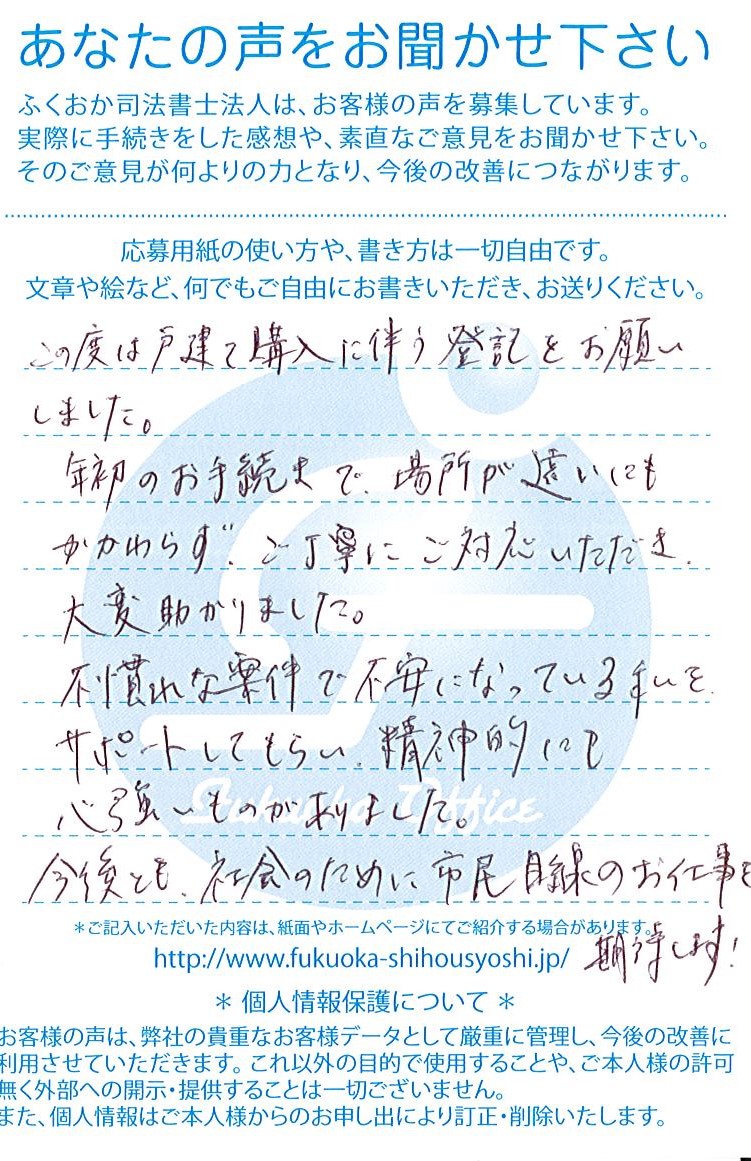 あなたの声をお聞かせ下さい
ふくおか司法書士法人は、お客様の声を募集しています。
実際に手続きをした感想や、素直なご意見をお聞かせ下さい。
そのご意見が何よりの力となり、今後の改善につながります。
応募用紙の使い方や、書き方は一切自由です。
文章や絵など、何でもご自由にお書きいただき、お送りください。
この度は戸建て購入に伴う登記をお願い
しました。
年初のお手続まで、場所が遠いにも
かかわらず、ご丁寧にご対応いただき、
大変助かりました。
不慣れな案件で不安になっている私を
サポートしてもらい、精神的にも
心強いものがありました。
今後とも、社会のために市民目線のお仕事を
期待します!
Fukuoka Office
*ご記入いただいた内容は、紙面やホームページにてご紹介する場合があります。
http://www.fukuoka-shihousyoshi.jp/
* 個人情報保護について *
お客様の声は、弊社の貴重なお客様データとして厳重に管理し、今後の改善に
利用させていただきます。これ以外の目的で使用することや、ご本人様の許可
無く外部への開示・提供することは一切ございません。
また、個人情報はご本人様からのお申し出により訂正・削除いたします。